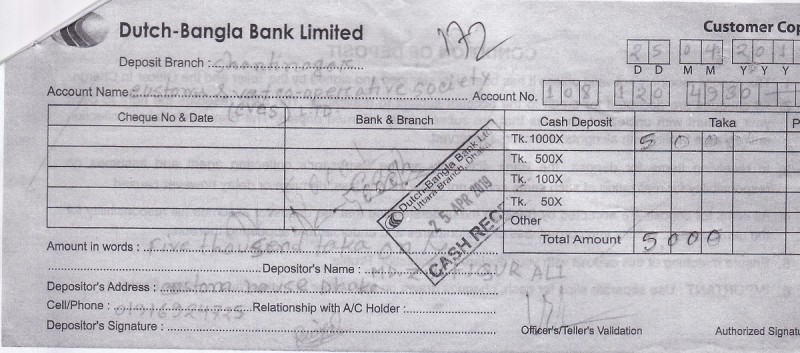 Dutch-Bangla Bank Limited
172
Customer Cop
Deposit Branch :
25 04 201
D D M M Y Y Y
Account Name customs & vat co-operative society
Account No. 108 120 4930
(eves) Ltd
Cheque No & Date Bank & Branch Cash Deposit Taka P
Tk. 1000X 5000
Tk. 500X
Tk. 100X
Tk. 50X
Other
Total Amount 5000
Dutch-Bangla Bank Ltd
Uttara Branch, Dhaka
25 APR 2019
CASH RECE
Amount in words : Five thousand taka only
Depositor's Name : MD. ALI
Depositor's Address : custom house Dhaka
Cell/Phone : Relationship with A/C Holder :
Depositor's Signature :
Officer's/Teller's Validation
Authorized Signatu